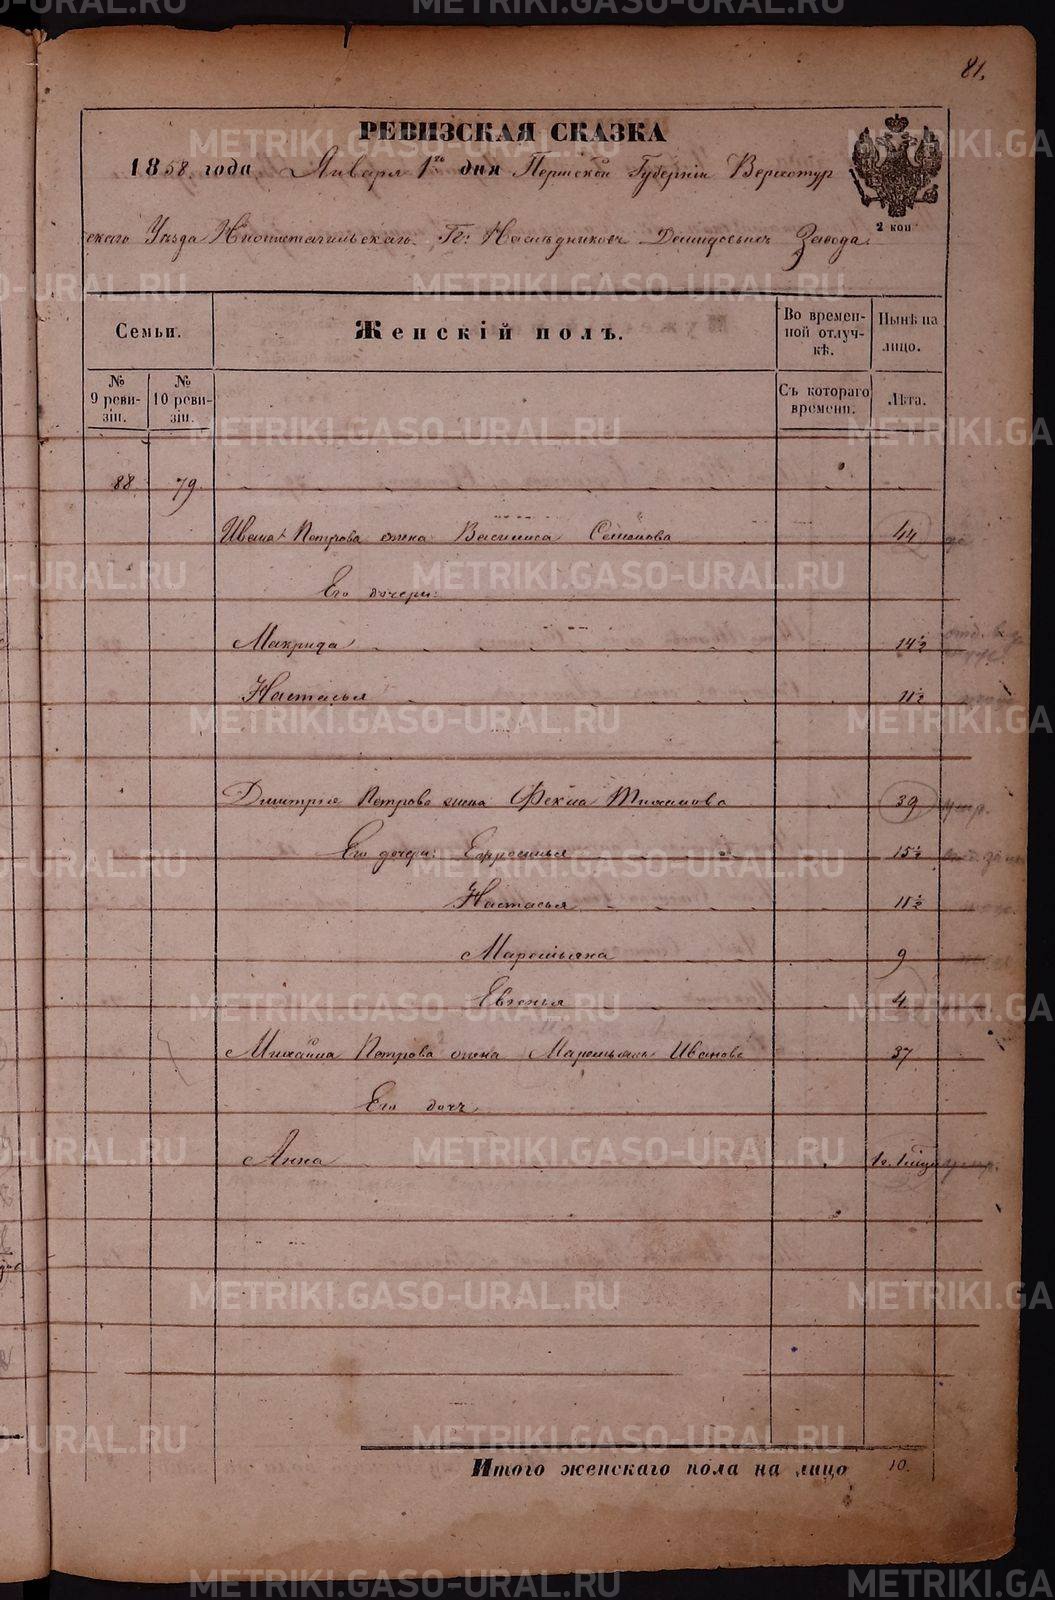 81.
РЕВИЗСКАЯ СКАЗКА
1858 года Января 1го дня Пермской Губернiи Верхотур
2 коп
скаго Уѣзда Нижнетагильскаго Гг: Наслѣдниковъ Демидовыхъ Завода
Семьи. Женскiй полъ. Во времен-ной отлуч-кѣ. Нынѣ на лицо.
№ 9 реви-зiи. № 10 реви-зiи. Съ котораго времени. Лѣта.
88. 79.
Ивана Петрова жена Василиса Семенова 44
Его дочери:
Макрида 14½
Настасья 11½
Дмитрiя Петрова жена Фекла 39 умр.
Его дочери: Ефросинья 15½
Настасья 11½
Маремьяна 9
Евгенья 4
Михаила Петрова жена Маремьяна Иванова 37
Его дочь
Анна 1
Итого женскаго пола на лицо 10.
METRIKI.GASO-URAL.RU